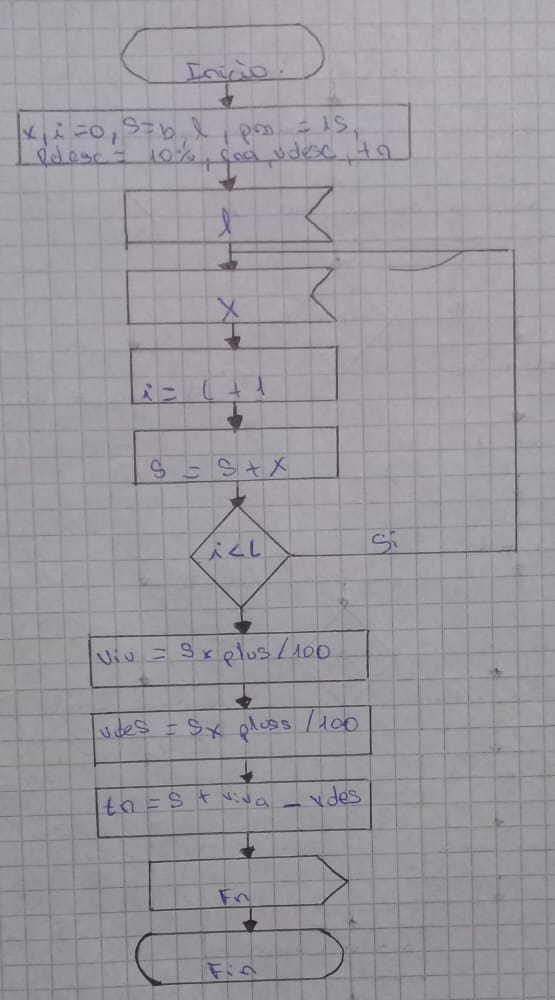 Inicio.
x, i=0, S=b, l, = 15,
Pdesc = 10%, vdesc, tn
l
X
i = l + 1
S = S + X
i < L
Si
viv = S x plus / 100
vdes = S x pluss / 100
tn = S + viva - vdes
Fn
Fin